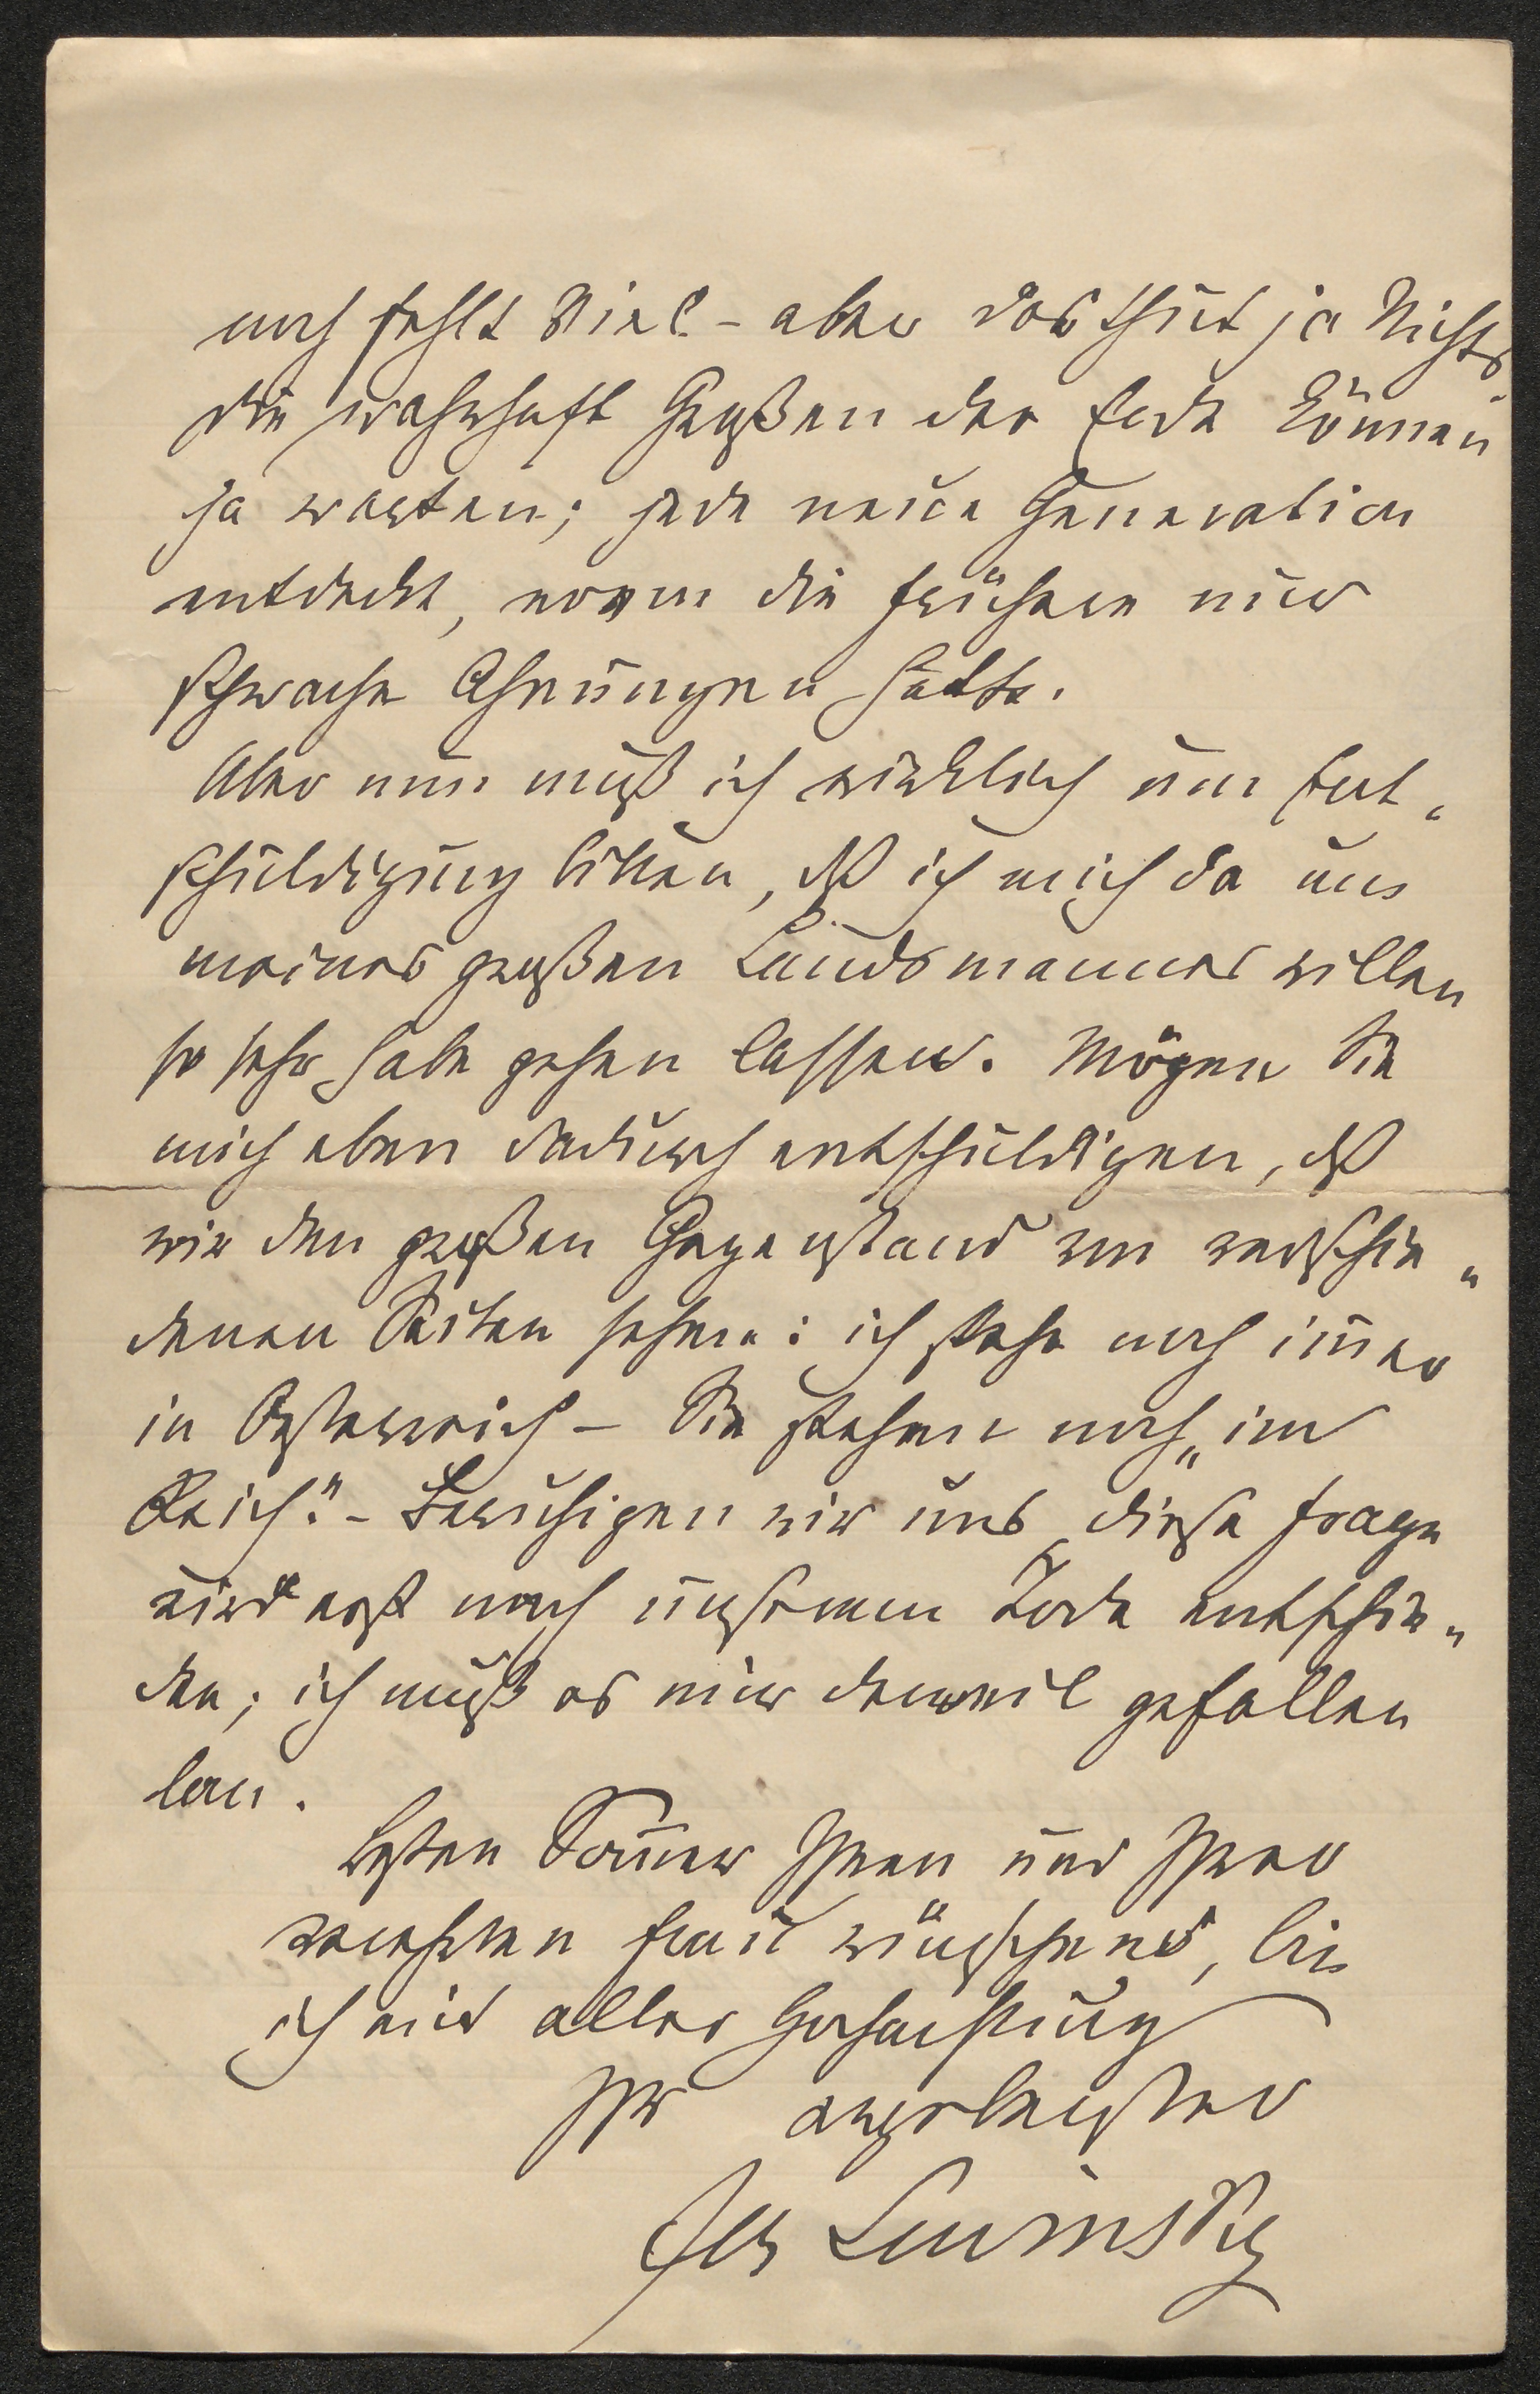 noch fehlt Viel – aber das thut ja Nichts
die wahrhaft Großen der Erde können
ja warten; jede neue Generation
entdeckt, wovon die frühere nur
schwache Ahnungen hatte.
Aber nun muß ich wirklich um Ent„
schuldigung bitten, dß ich mich da um
meines großen Landsmannes willen
so sehr habe gehen lassen. Mögen Sie
mich eben dadurch entschuldigen, dß
wir den großen Gegenstand von verschie„
denen Seiten sehen: ich stehe noch im̄er
in Oesterreich – Sie stehen noch „im
Reich“. – Beruhigen wir uns, diese Frage
wird erst nach unserem Tode entschie„
den; ich muß es mir derweil gefallen
lan.
Besten Som̄er Ihnen und Ihrer
verehrten Frau wünschend, bin
ich mit aller Hochachtung
Ihr ergebenster
Jos Lewinsky